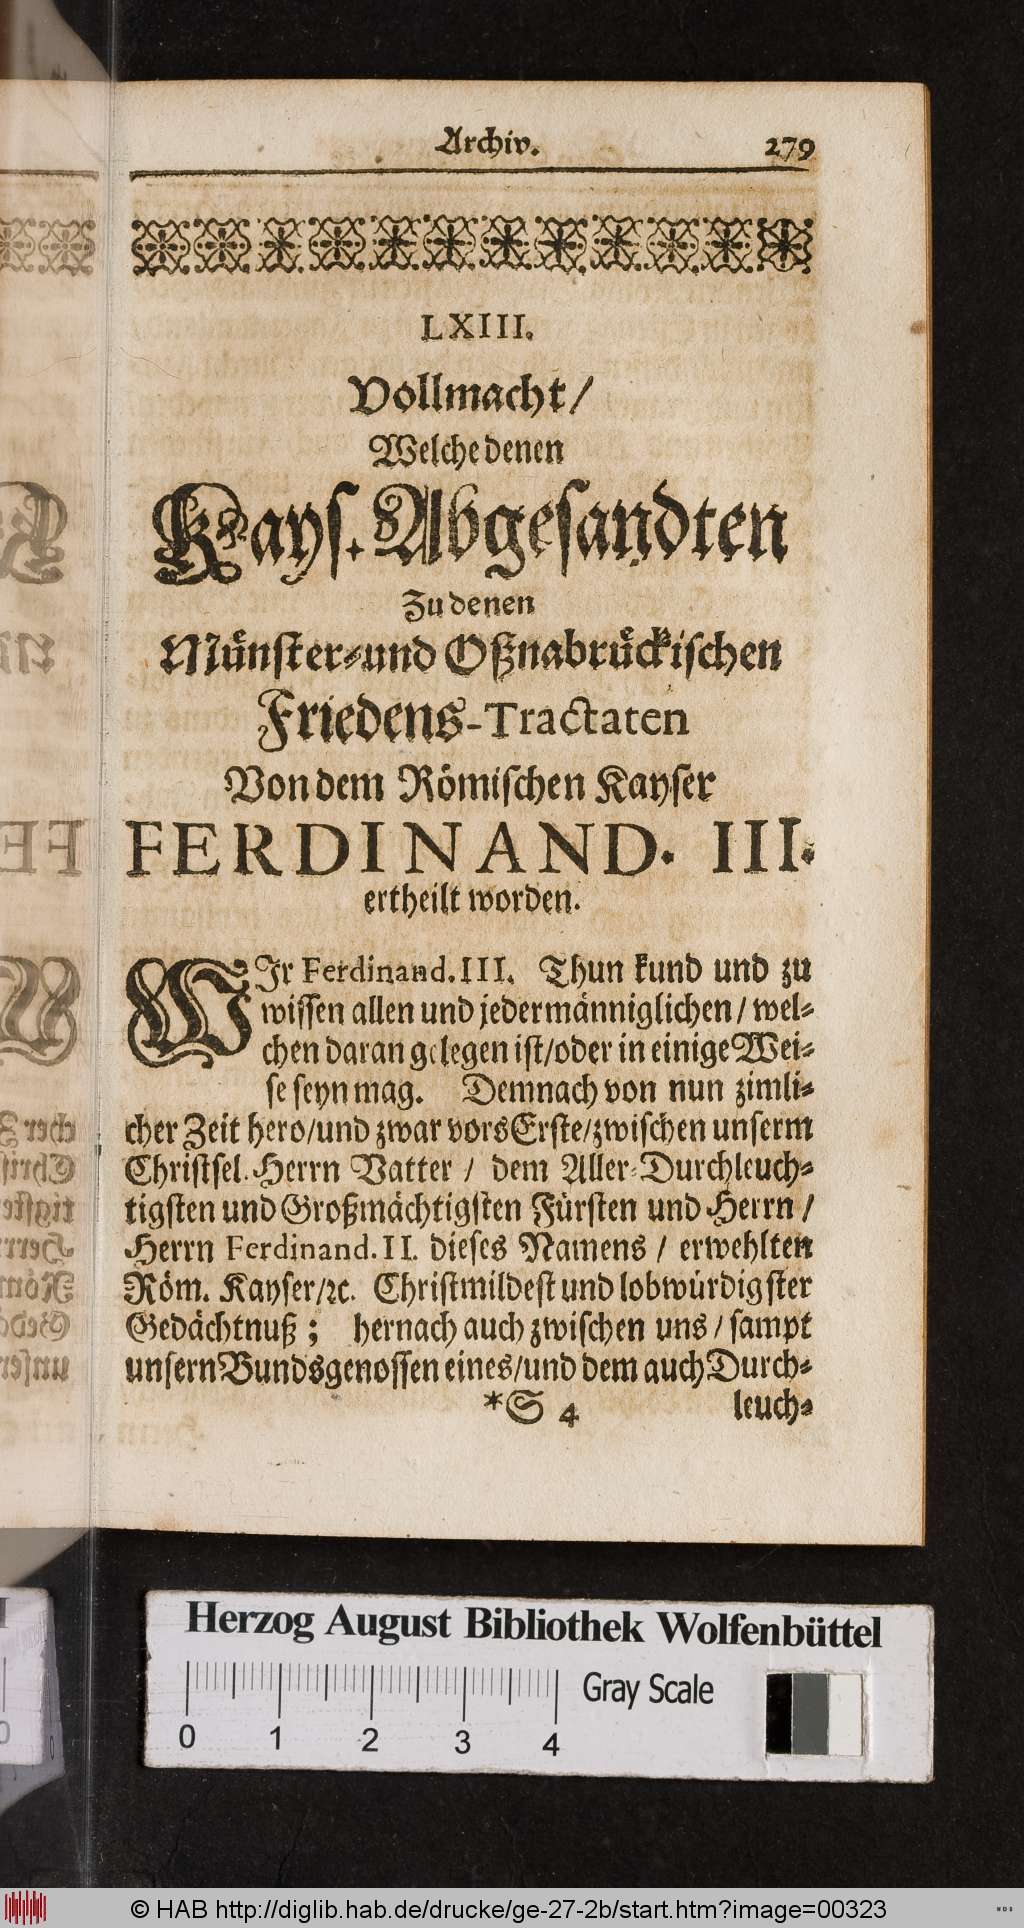 Archiv. 279
LXIII.
Vollmacht/
Welche denen
Kays. Abgesandten
Zu denen
Münster-und Oßnabrückischen
Friedens-Tractaten
Von dem Römischen Kayser
FERDINAND. III.
ertheilt worden.
WIr Ferdinand. III. Thun kund und zu
wissen allen und jedermänniglichen/ wel-
chen daran gelegen ist/oder in einige Wei-
se seyn mag. Demnach von nun zimli-
cher Zeit hero/und zwar vors Erste/zwischen unserm
Christsel. Herrn Vatter / dem Aller-Durchleuch-
tigsten und Großmächtigsten Fürsten und Herrn /
Herrn Ferdinand. II. dieses Namens / erwehlten
Röm. Kayser/ꝛc. Christmildest und lobwürdigster
Gedächtnuß ; hernach auch zwischen uns / sampt
unsern Bundsgenossen eines/und dem auch Durch-
*S 4 leuch-
Herzog August Bibliothek Wolfenbüttel
Gray Scale
0 1 2 3 4
© HAB http://diglib.hab.de/drucke/ge-27-2b/start.htm?image=00323